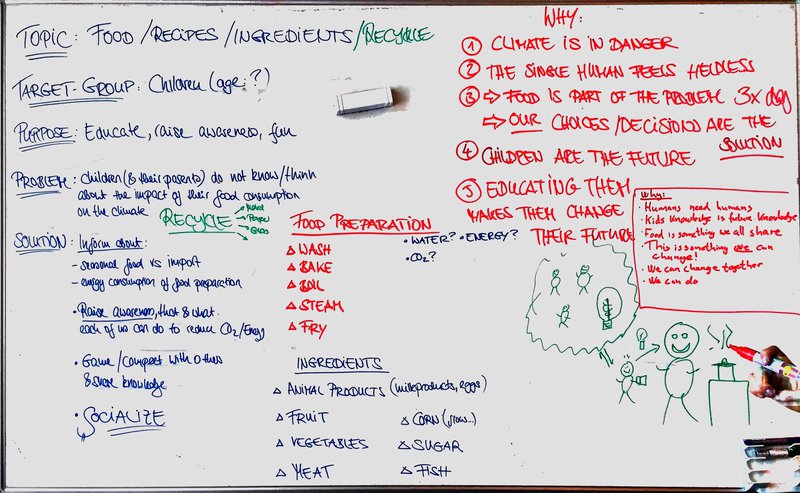 TOPIC: FOOD/RECIPES/INGREDIENTS/RECYCLE
TARGET-GROUP: Children (age: ?)
PURPOSE: Educate, raise awareness, fun
PROBLEM: Children (& their parents) do not know/think
about the impact of their food consumption
on the climate
RECYCLE
SOLUTION: Inform about:
- seasonal food vs import
- energy consumption of food preparation
• Raise awareness, that & what
each of us can do to reduce CO2/Energy
• Game/compete with others
& share knowledge
• SOCIALIZE
FOOD PREPARATION
WASH
BAKE
BOIL
STEAM
FRY
• WATER? • ENERGY?
• CO2?
INGREDIENTS
ANIMAL PRODUCTS (milkproducts, eggs)
FRUIT
VEGETABLES
MEAT
CORN
SUGAR
FISH
WHY:
① CLIMATE IS IN DANGER
② THE SINGLE HUMAN FEELS HELPLESS
③ ⇒ FOOD IS PART OF THE PROBLEM 3x day
⇒ OUR CHOICES/DECISIONS ARE THE
SOLUTION
④ CHILDREN ARE THE FUTURE
⑤ EDUCATING THEM
MAKES THEM CHANGE
THEIR FUTURE
Why:
• Humans need humans
• Kids knowledge is future knowledge
• Food is something we all share
• This is something we can
change!
• We can change together
• We can do